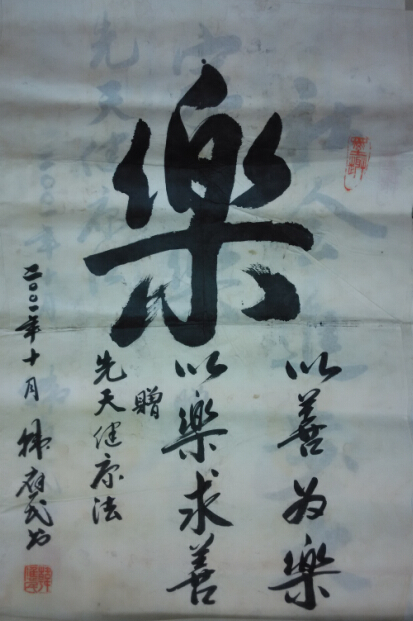 樂
以善为樂
以樂求善
贈
先天健康法
二〇〇一年十月